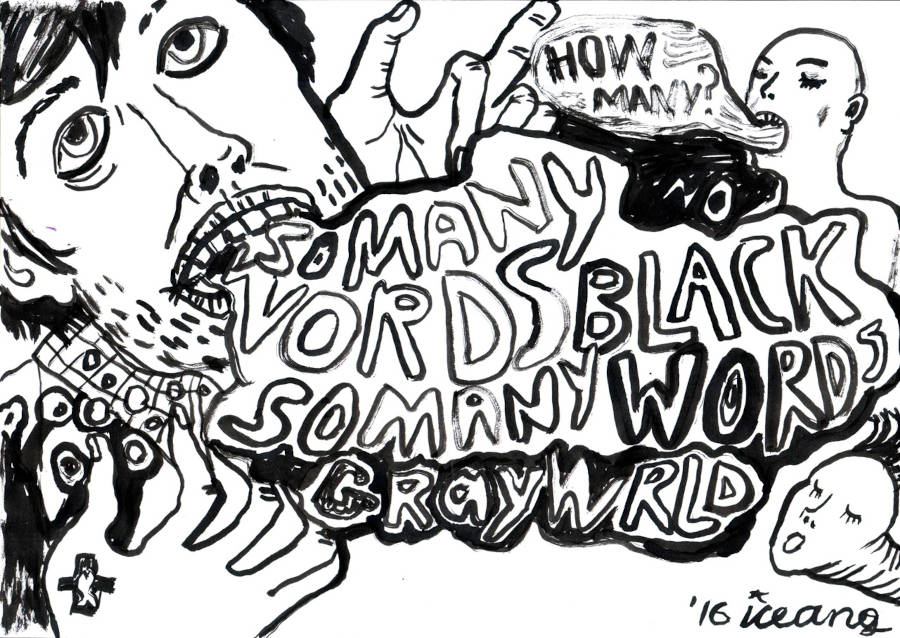 HOW
MANY?
NO
SO MANY
WORDS BLACK
SO MANY WORDS
GRAYWRLD
'16 iceang